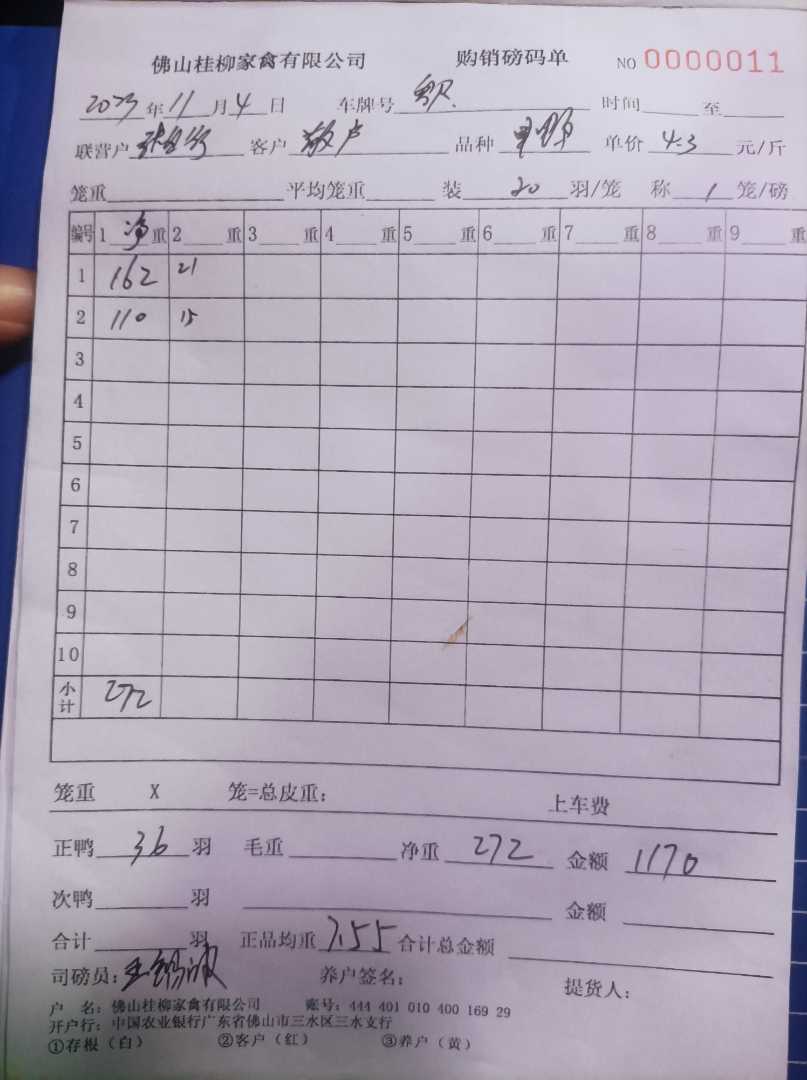 佛山桂柳家禽有限公司 购销磅码单 NO 0000011
2023年11月4日 车牌号 时间 至
联营户 客户 散户 品种 单价 4.3 元/斤
笼重 平均笼重 装 20 羽/笼 称 1 笼/磅
编号 1 净重 2 重 3 重 4 重 5 重 6 重 7 重 8 重 9 重
1 162 21
2 110 15
3
4
5
6
7
8
9
10
小计 272
笼重 X 笼=总皮重: 上车费
正鸭 36 羽 毛重 净重 272 金额 1170
次鸭 羽 金额
合计 羽 正品均重 7.55 合计总金额
司磅员: 养户签名: 提货人:
户 名: 佛山桂柳家禽有限公司 账号: 444 401 010 400 169 29
开户行: 中国农业银行广东省佛山市三水区三水支行
①存根（白） ②客户（红） ③养户（黄）